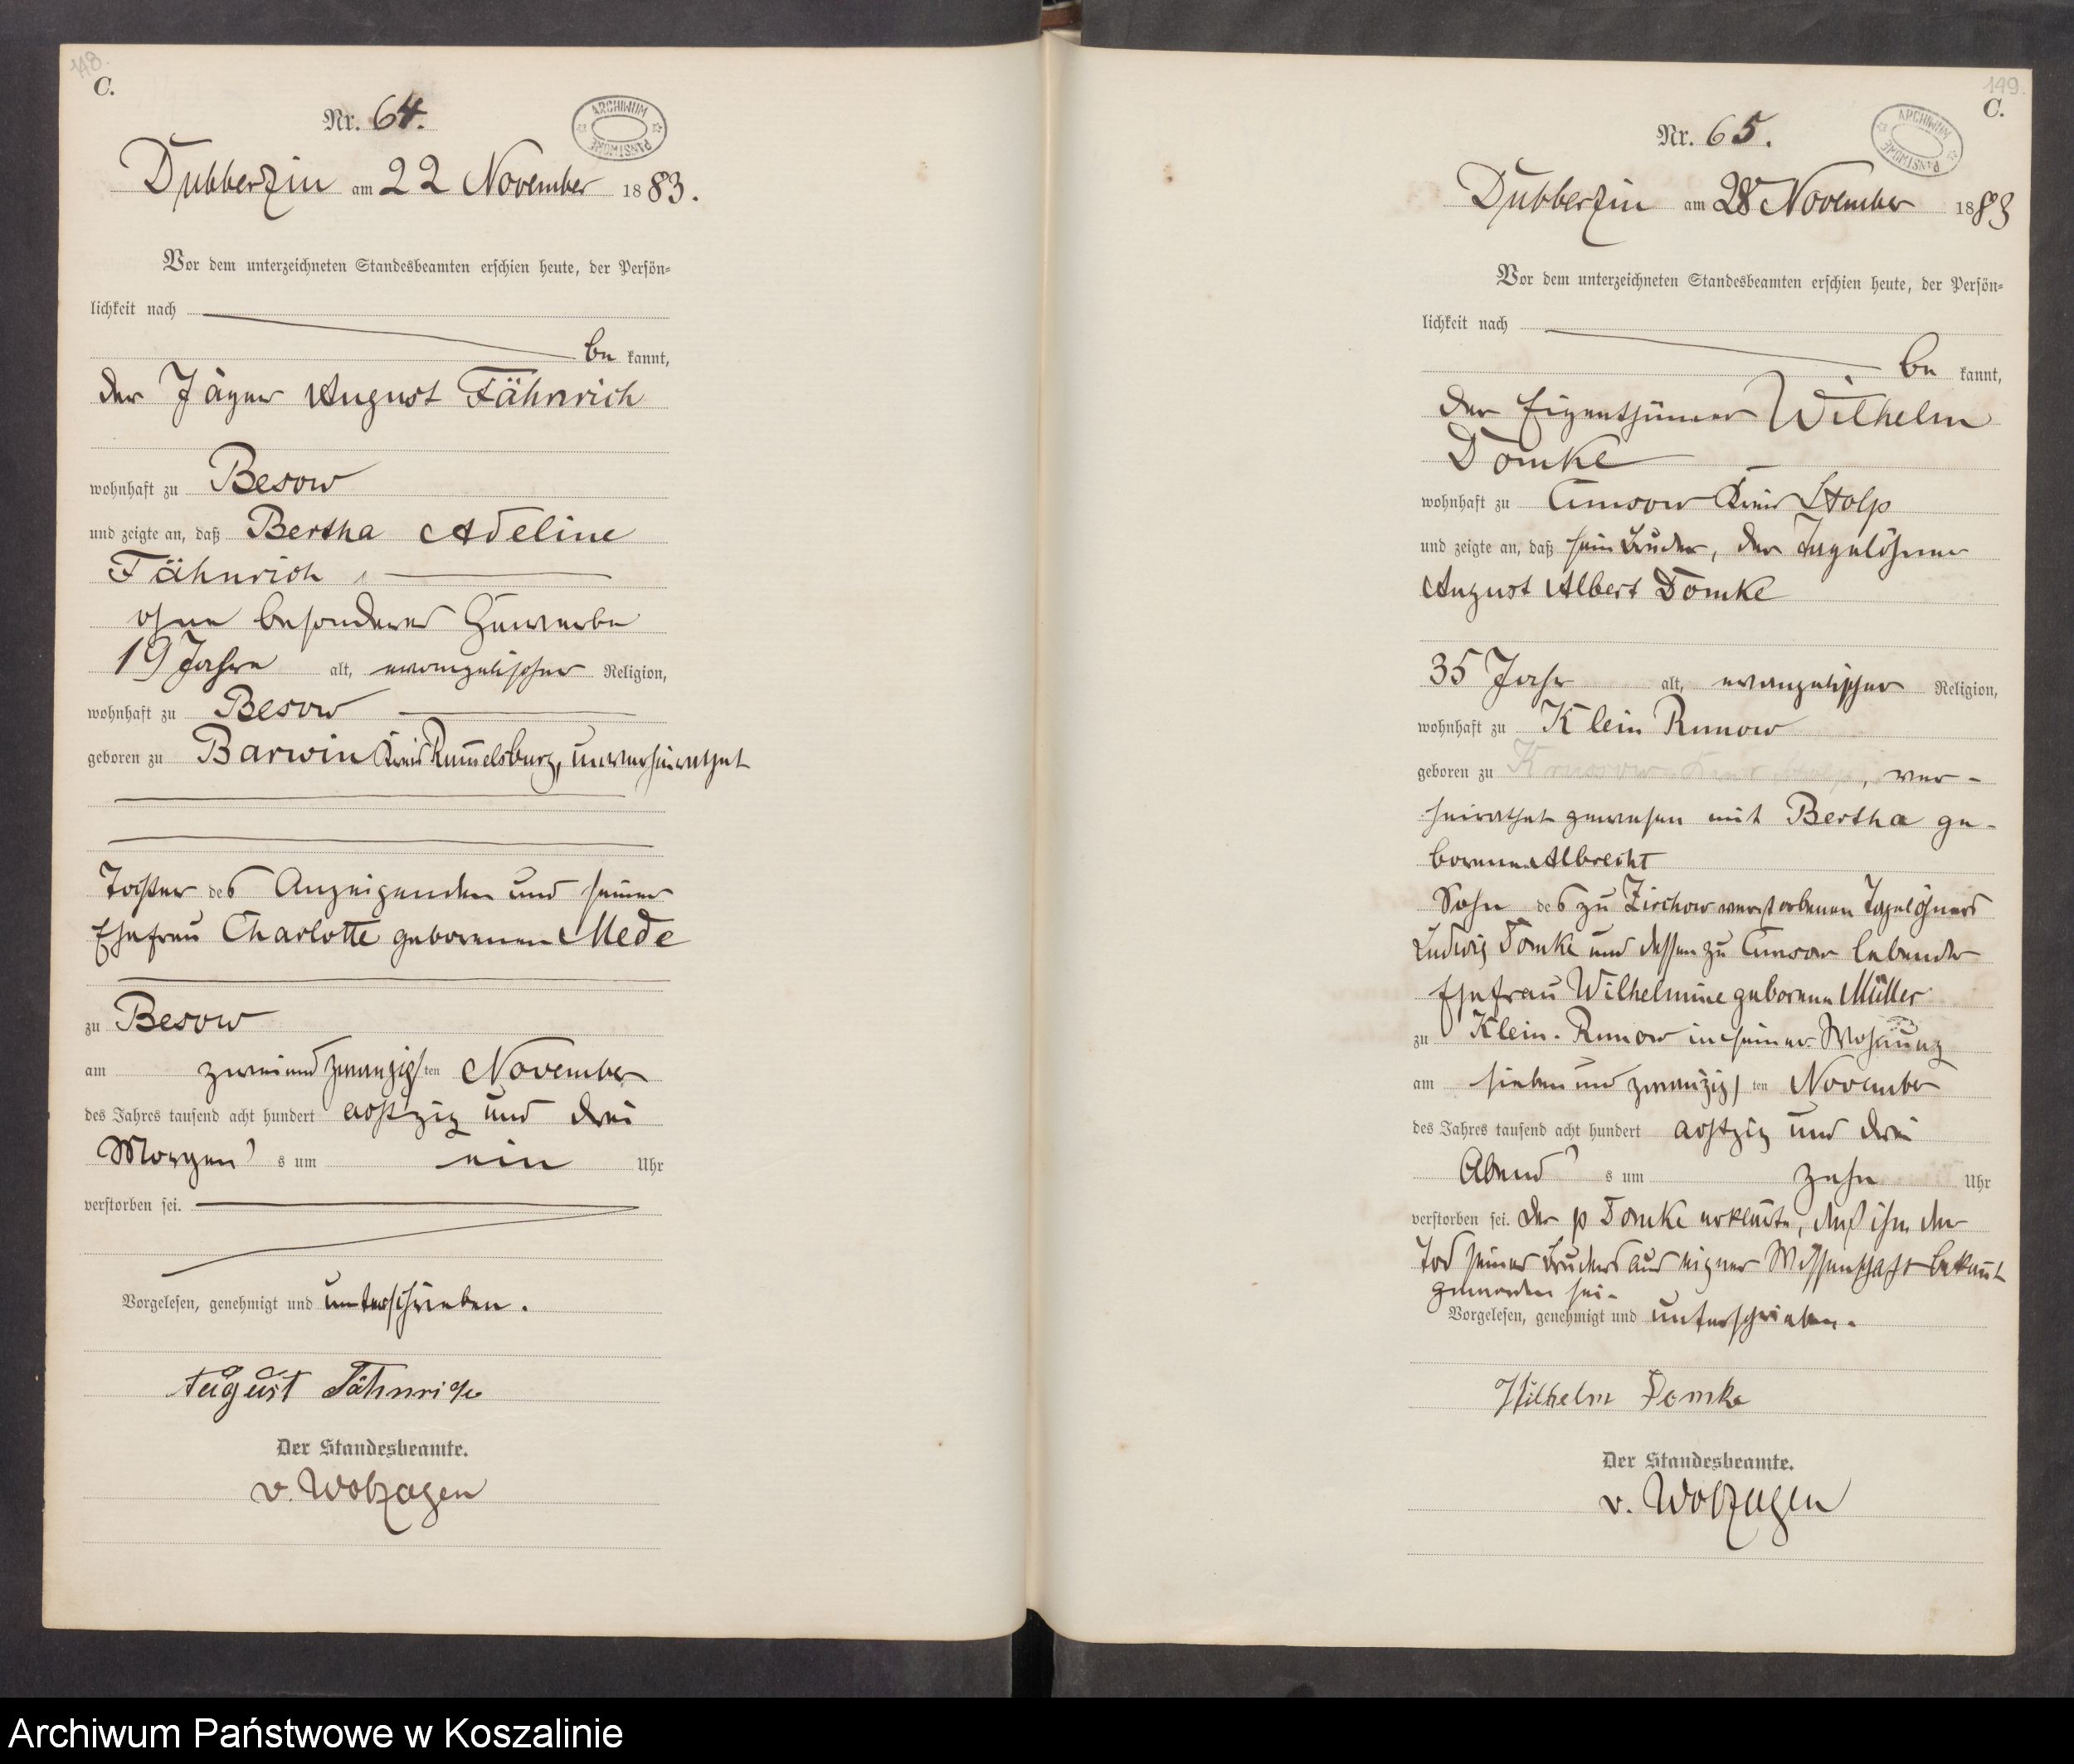 148.
C.
Nr. 64.
ARCHIWUM PAŃSTWOWE
Dubberzin am 22 November 1883.
Vor dem unterzeichneten Standesbeamten erschien heute, der Persön-
lichkeit nach
be kannt,
der Jäger August Fähnrich
wohnhaft zu Besow
und zeigte an, daß Bertha Adeline
Fähnrich,
ohne besonderes Gewerbe
19 Jahre alt, evangelischer Religion,
wohnhaft zu Besow
geboren zu Barwin Kreis Rummelsburg, unverheirathet
Tochter des Anzeigenden und seiner
Ehefrau Charlotte geborenen Mede
zu Besow
am zweiundzwanzigsten November
des Jahres tausend acht hundert achtzig und drei
Morgens um ein Uhr
verstorben sei.
Vorgelesen, genehmigt und unterschrieben.
August Fähnrich
Der Standesbeamte.
v. Wolzogen
149.
C.
Nr. 65.
ARCHIWUM PAŃSTWOWE
Dubberzin am 28 November 1883
Vor dem unterzeichneten Standesbeamten erschien heute, der Persön-
lichkeit nach
be kannt,
der Eigenthümer Wilhelm
Domke
wohnhaft zu Cunsow Kreis Stolp
und zeigte an, daß sein Bruder, der Tagelöhner
August Albert Domke
35 Jahr alt, evangelischer Religion,
wohnhaft zu Klein Runow
geboren zu Kreis Stolp, ver-
heirathet gewesen mit Bertha ge-
borenen Albrecht
Sohn des zu Zirchow verstorbenen Tagelöhners
Ludwig Domke und dessen zu Cunsow lebender
Ehefrau Wilhelmine geborene Müller
zu Klein-Runow in seiner Wohnung
am sieben und zwanzigsten November
des Jahres tausend acht hundert achtzig und drei
Abends um zehn Uhr
verstorben sei. Der p Domke erklärte, daß ihm der
Tod seines Bruders aus eigner Wissenschaft bekannt
geworden sei.
Vorgelesen, genehmigt und unterschrieben.
Wilhelm Domke
Der Standesbeamte.
v. Wolzogen
Archiwum Państwowe w Koszalinie